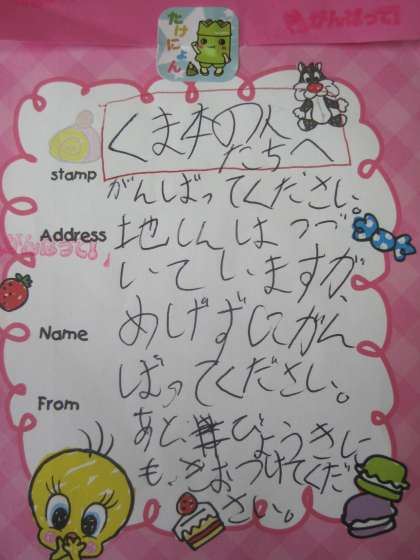 がんばって!
たけにょん
くま本の人
たちへ
stamp
がんばってください。
Address
がんばって!
地しんはつづ
いていますが、
Name
めげずにがん
ばってください。
From
あと、びょうきに
も、きおつけてくだ
さい。